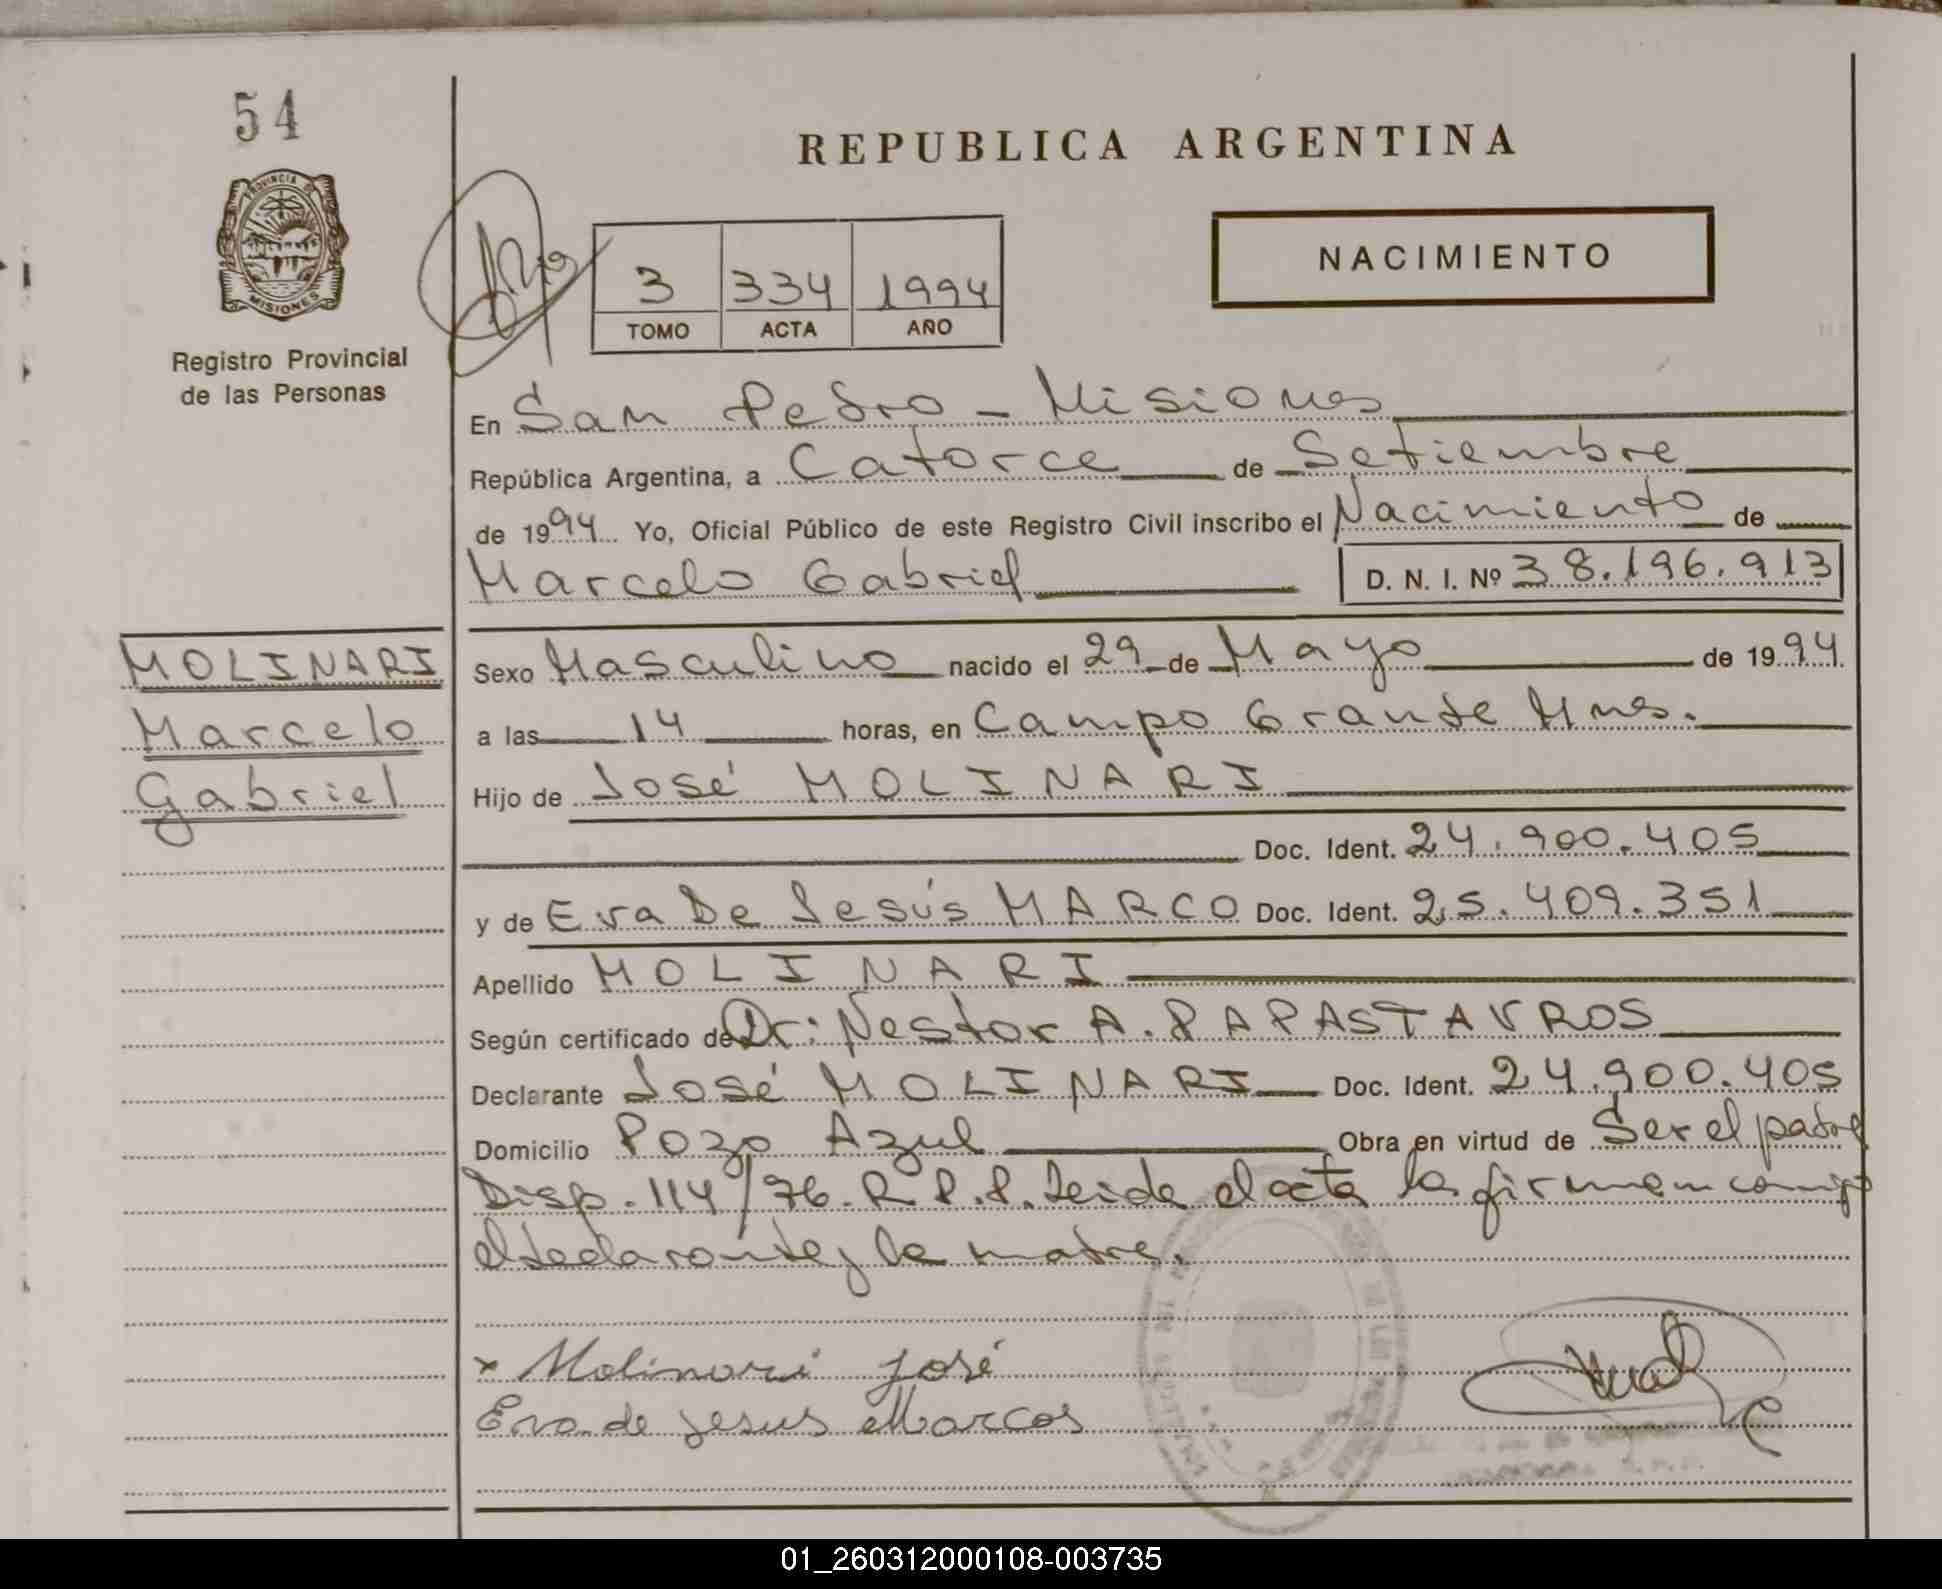 54
REPUBLICA ARGENTINA
PROVINCIA DE
MISIONES
NACIMIENTO
3 334 1994
TOMO ACTA AÑO
Registro Provincial
de las Personas
En San Pedro - Misiones
República Argentina, a Catorce de Setiembre
de 1994. Yo, Oficial Público de este Registro Civil inscribo el Nacimiento de
Marcelo Gabriel D. N. I. Nº 38.196.913
MOLINARI
Marcelo
Gabriel
Sexo Masculino nacido el 29 de Mayo de 1994.
a las 14 horas, en Campo Grande Mnes.
Hijo de José MOLINARI
Doc. Ident. 24.900.405
y de Eva De Jesús MARCO Doc. Ident. 25.409.351
Apellido MOLINARI
Según certificado de Dr: Nestor A. PAPASTAVROS
Declarante José MOLINARI Doc. Ident. 24.900.405
Domicilio Pozo Azul Obra en virtud de Ser el padre
Disp. 114/76. R.P.P. Leida el acta la firman conmigo
el declarante y la madre.
x Molinari José
Eva de Jesus Marcos
01_260312000108-003735